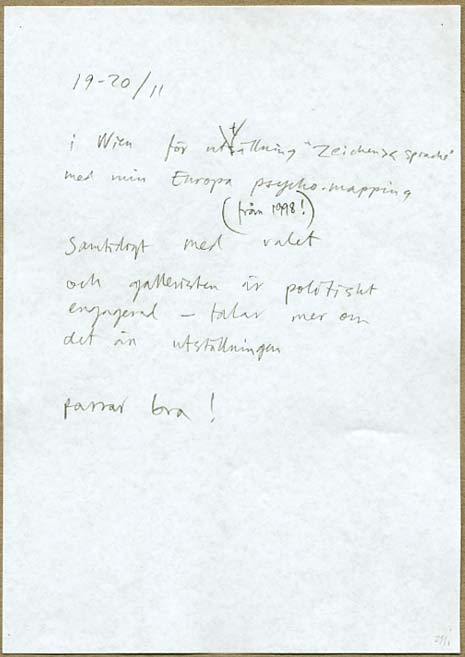 19-20/11
i Wien för utställning "Zeichen & Sprache"
med min Europa psycho-mapping
(från 1998!)
Samtidigt med valet
och galleristen är politiskt
engagerad – talar mer om
det än utställningen
passar bra!